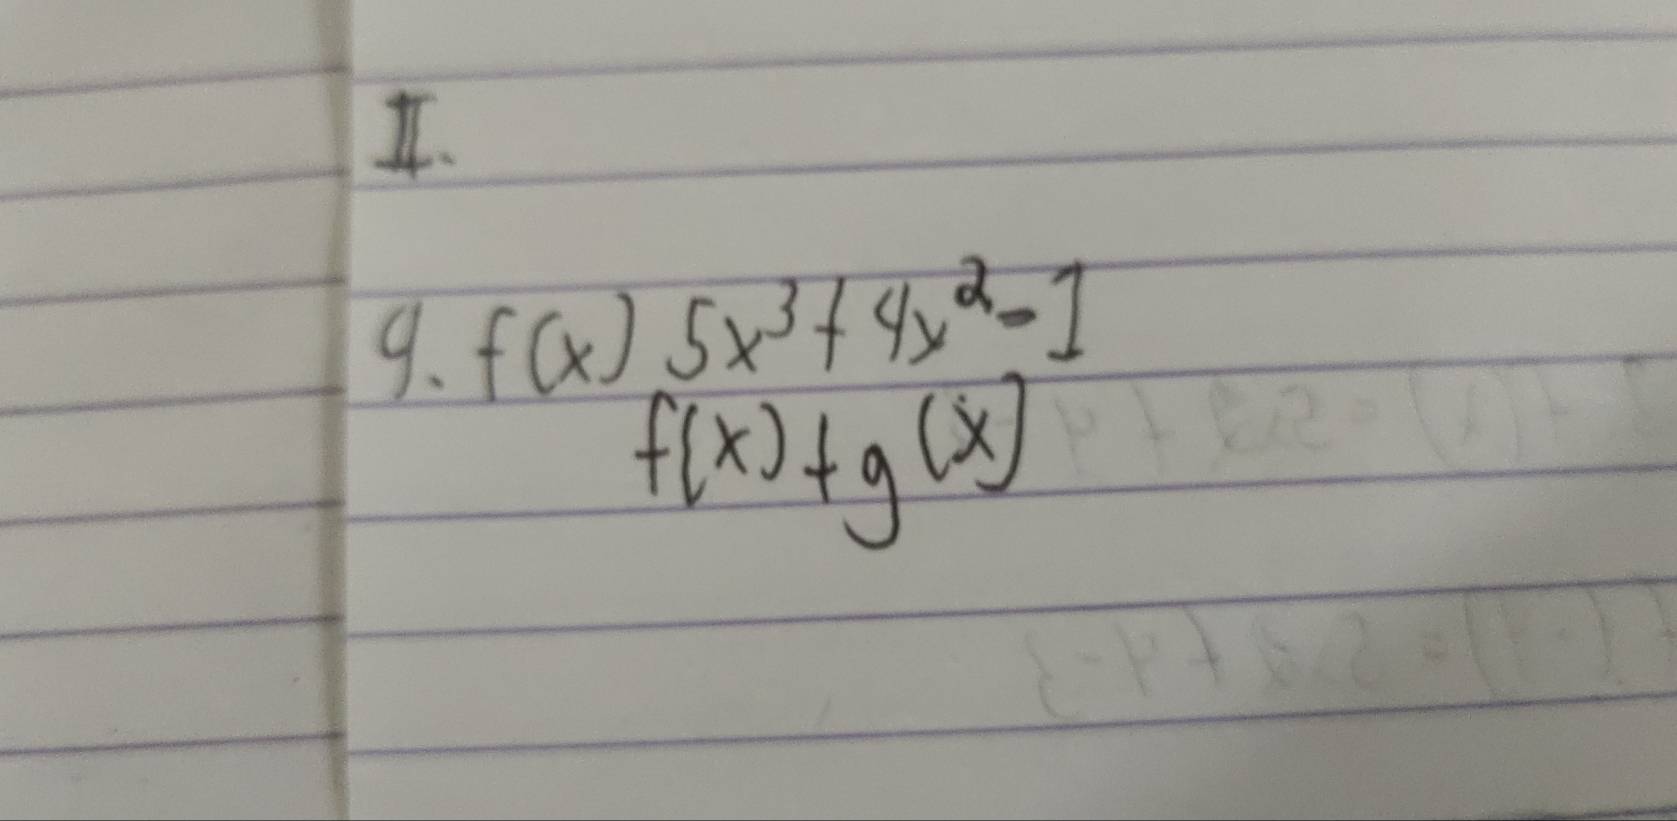 II.
9. f(x) 5x³ + 4x² - 1
f(x) + g(x)